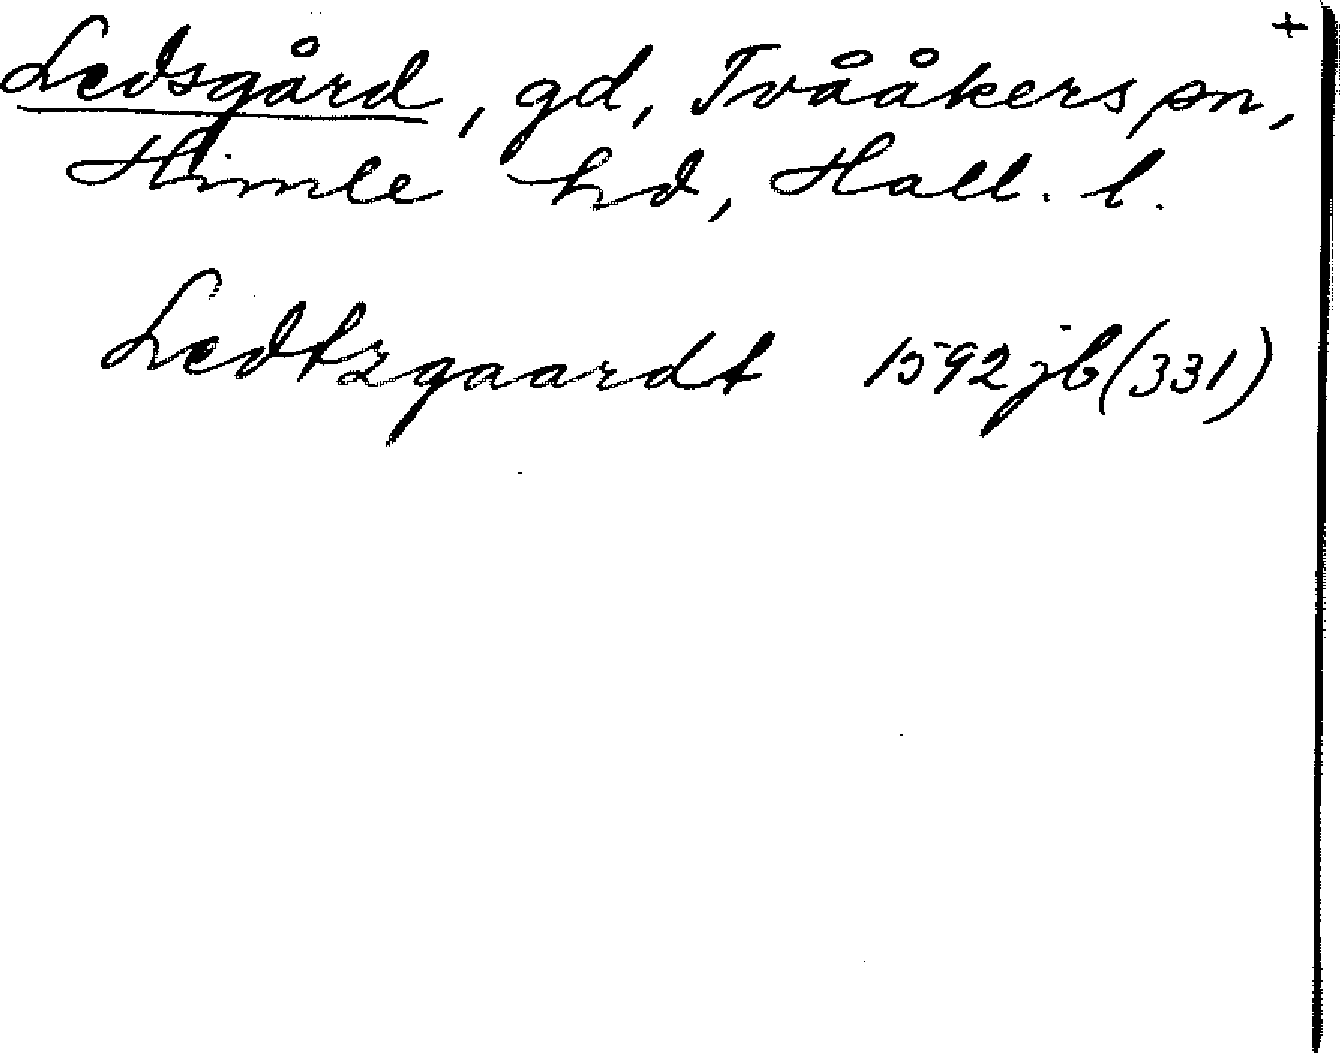 +
Ledsgård, gd, Tvååkers sn,
Himle hd, Hall. l.
Ledtzgaardt 1592 jb (331)